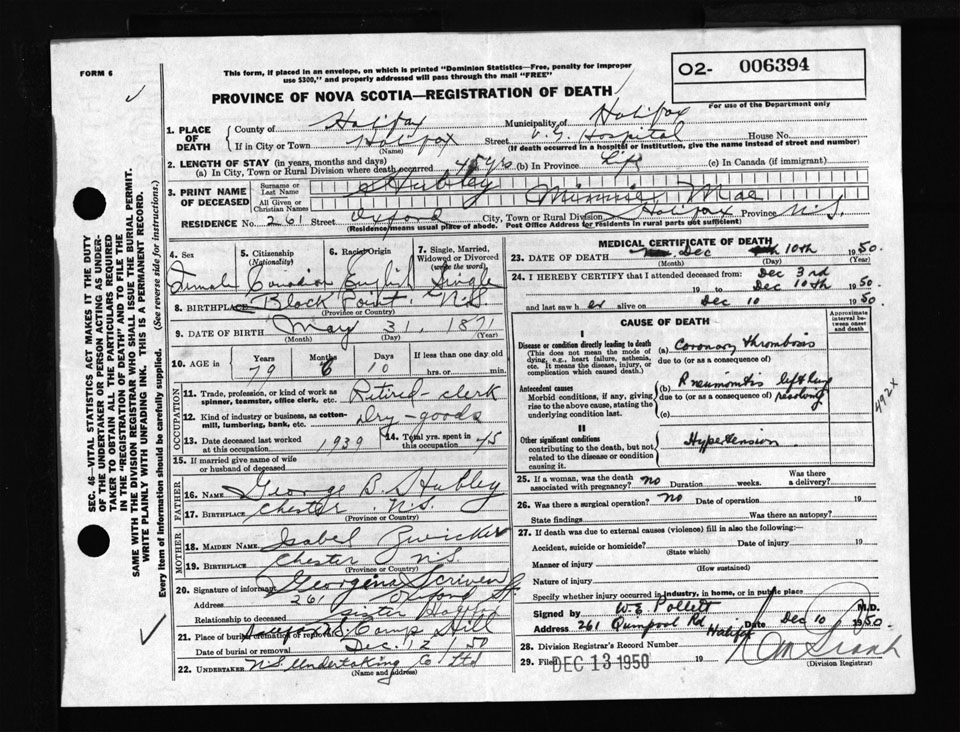 FORM 6
This form, if placed in an envelope, on which is printed "Dominion Statistics—Free, penalty for improper
use $300," and properly addressed will pass through the mail "FREE"
O2- 006394
For use of the Department only
PROVINCE OF NOVA SCOTIA—REGISTRATION OF DEATH
SEC. 46—VITAL STATISTICS ACT MAKES IT THE DUTY
OF THE UNDERTAKER OR PERSON ACTING AS UNDER-
TAKER TO OBTAIN ALL THE PARTICULARS REQUIRED
IN THE "REGISTRATION OF DEATH" AND TO FILE THE
SAME WITH THE DIVISION REGISTRAR WHO SHALL ISSUE THE BURIAL PERMIT.
WRITE PLAINLY WITH UNFADING INK. THIS IS A PERMANENT RECORD.
Every item of information should be carefully supplied. (See reverse side for instructions.)
1. PLACE OF DEATH
County of Halifax Municipality of Halifax
If in City or Town Halifax Street V. G. Hospital House No.
(Name) (If death occurred in a hospital or institution, give name instead of street and number)
2. LENGTH OF STAY (in years, months and days)
(a) In City, Town or Rural Division where death occurred 45 yrs (b) In Province Life (c) In Canada (if immigrant)
3. PRINT NAME OF DECEASED
Surname or Last Name Hubley
All Given or Christian Names Minnie Mae
RESIDENCE No. 261 Street Oxford City, Town or Rural Division Halifax Province N.S.
(Residence means usual place of abode. Post Office Address for residents in rural parts not sufficient)
4. Sex 5. Citizenship (Nationality) 6. Racial Origin 7. Single, Married, Widowed or Divorced (write the word)
Female Canadian English Single
8. BIRTHPLACE Black Point N.S.
(Province or Country)
9. DATE OF BIRTH May 31, 1871
(Month) (Day) (Year)
10. AGE in Years Months Days If less than one day old
79 6 10 hrs. or min.
OCCUPATION
11. Trade, profession, or kind of work as
spinner, teamster, office clerk, etc. Retired - clerk
12. Kind of industry or business, as cotton-
mill, lumbering, bank, etc. Dry-goods
13. Date deceased last worked
at this occupation 1939 14. Total yrs. spent in
this occupation 45
15. If married give name of wife
or husband of deceased
FATHER
16. NAME George B. Hubley
17. BIRTHPLACE Chester N.S.
(Province or Country)
MOTHER
18. MAIDEN NAME Isabel Zwicker
19. BIRTHPLACE Chester N.S.
(Province or Country)
20. Signature of informant Georgena Scriven
Address 261 Oxford St
Relationship to deceased sister Halifax
21. Place of burial, cremation or removal Camp Hill
Date of burial or removal Dec. 12 50
22. UNDERTAKER N.S. Undertaking Co Ltd
(Name and address)
MEDICAL CERTIFICATE OF DEATH
23. DATE OF DEATH Dec 10th 1950.
(Month) (Day) (Year)
24. I HEREBY CERTIFY that I attended deceased from: Dec 3rd
19 to Dec 10th 1950.
and last saw her alive on Dec 10 1950.
CAUSE OF DEATH
Approximate interval between onset and death
I
Disease or condition directly leading to death
(This does not mean the mode of
dying, e.g., heart failure, asthenia,
etc. It means the disease, injury, or
complication which caused death.)
(a) Coronary thrombosis
due to (or as a consequence of)
Antecedent causes
Morbid conditions, if any, giving
rise to the above cause, stating the
underlying condition last.
(b) Pneumonitis left lung
due to (or as a consequence of) resolving
(c)
492X
II
Other significant conditions
contributing to the death, but not
related to the disease or condition
causing it.
Hypertension
25. If a woman, was the death
associated with pregnancy? no Duration weeks. Was there
a delivery?
26. Was there a surgical operation? no Date of operation 19
State findings Was there an autopsy?
27. If death was due to external causes (violence) fill in also the following:—
Accident, suicide or homicide? Date of injury 19
(State which)
Manner of injury
(How sustained)
Nature of injury
Specify whether injury occurred in industry, in home, or in public place
Signed by W. E. Pollett M.D.
Address 261 Quinpool Rd Halifax Date Dec 10 1950.
28. Division Registrar's Record Number
29. Filed DEC 13 1950
(Division Registrar)